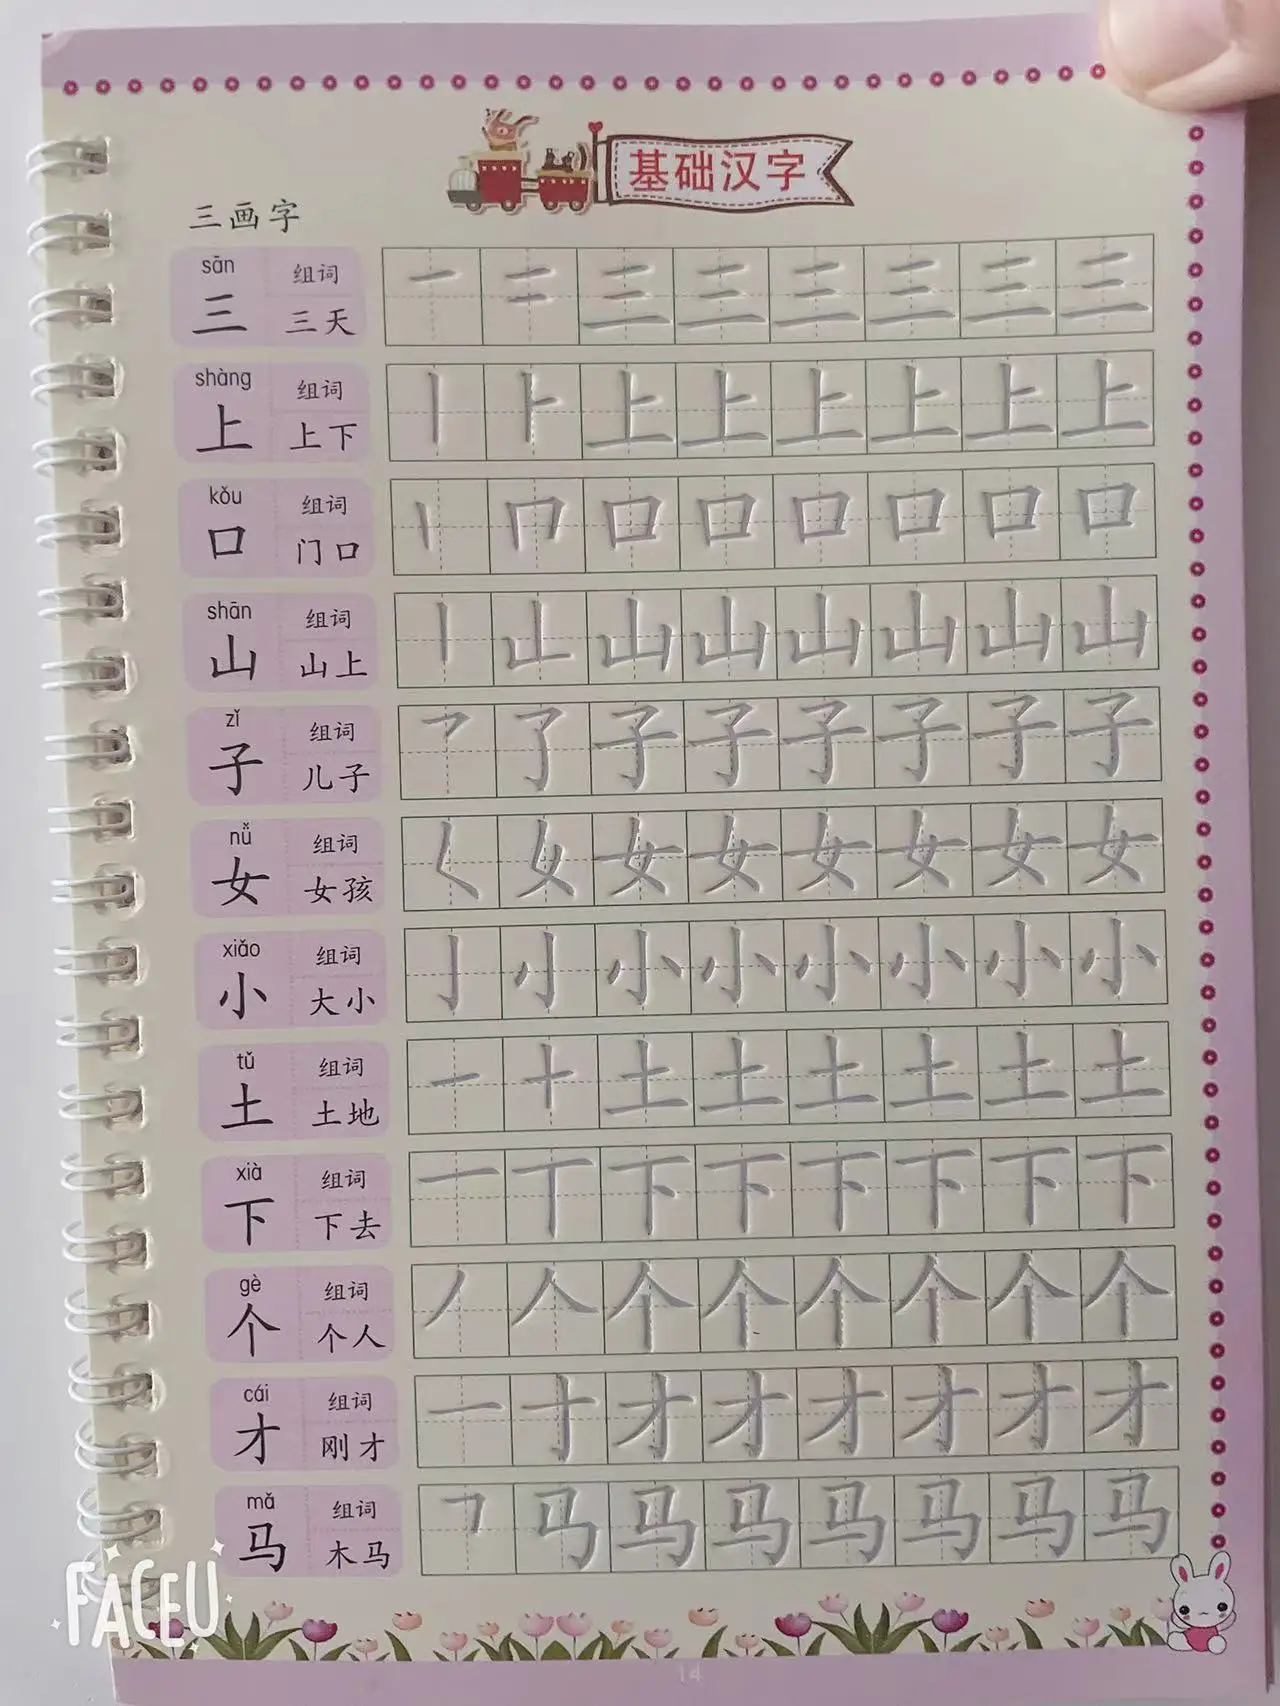 基础汉字
三画字
sān 组词
三 三天 一 二 三 三 三 三 三 三
shàng 组词
上 上下 丨 ⺊ 上 上 上 上 上 上
kǒu 组词
口 门口 丨 冂 口 口 口 口 口 口
shān 组词
山 山上 丨 山 山 山 山 山 山
zǐ 组词
子 儿子 乛 了 子 子 子 子 子 子
nǚ 组词
女 女孩 𡿨 女 女 女 女 女 女
xiǎo 组词
小 大小 亅 小 小 小 小 小 小
tǔ 组词
土 土地 一 十 土 土 土 土 土 土
xià 组词
下 下去 一 丅 下 下 下 下 下 下
gè 组词
个 个人 丿 人 个 个 个 个 个 个
cái 组词
才 刚才 一 十 才 才 才 才 才 才
mǎ 组词
马 木马 马 马 马 马 马 马
FACEU
14